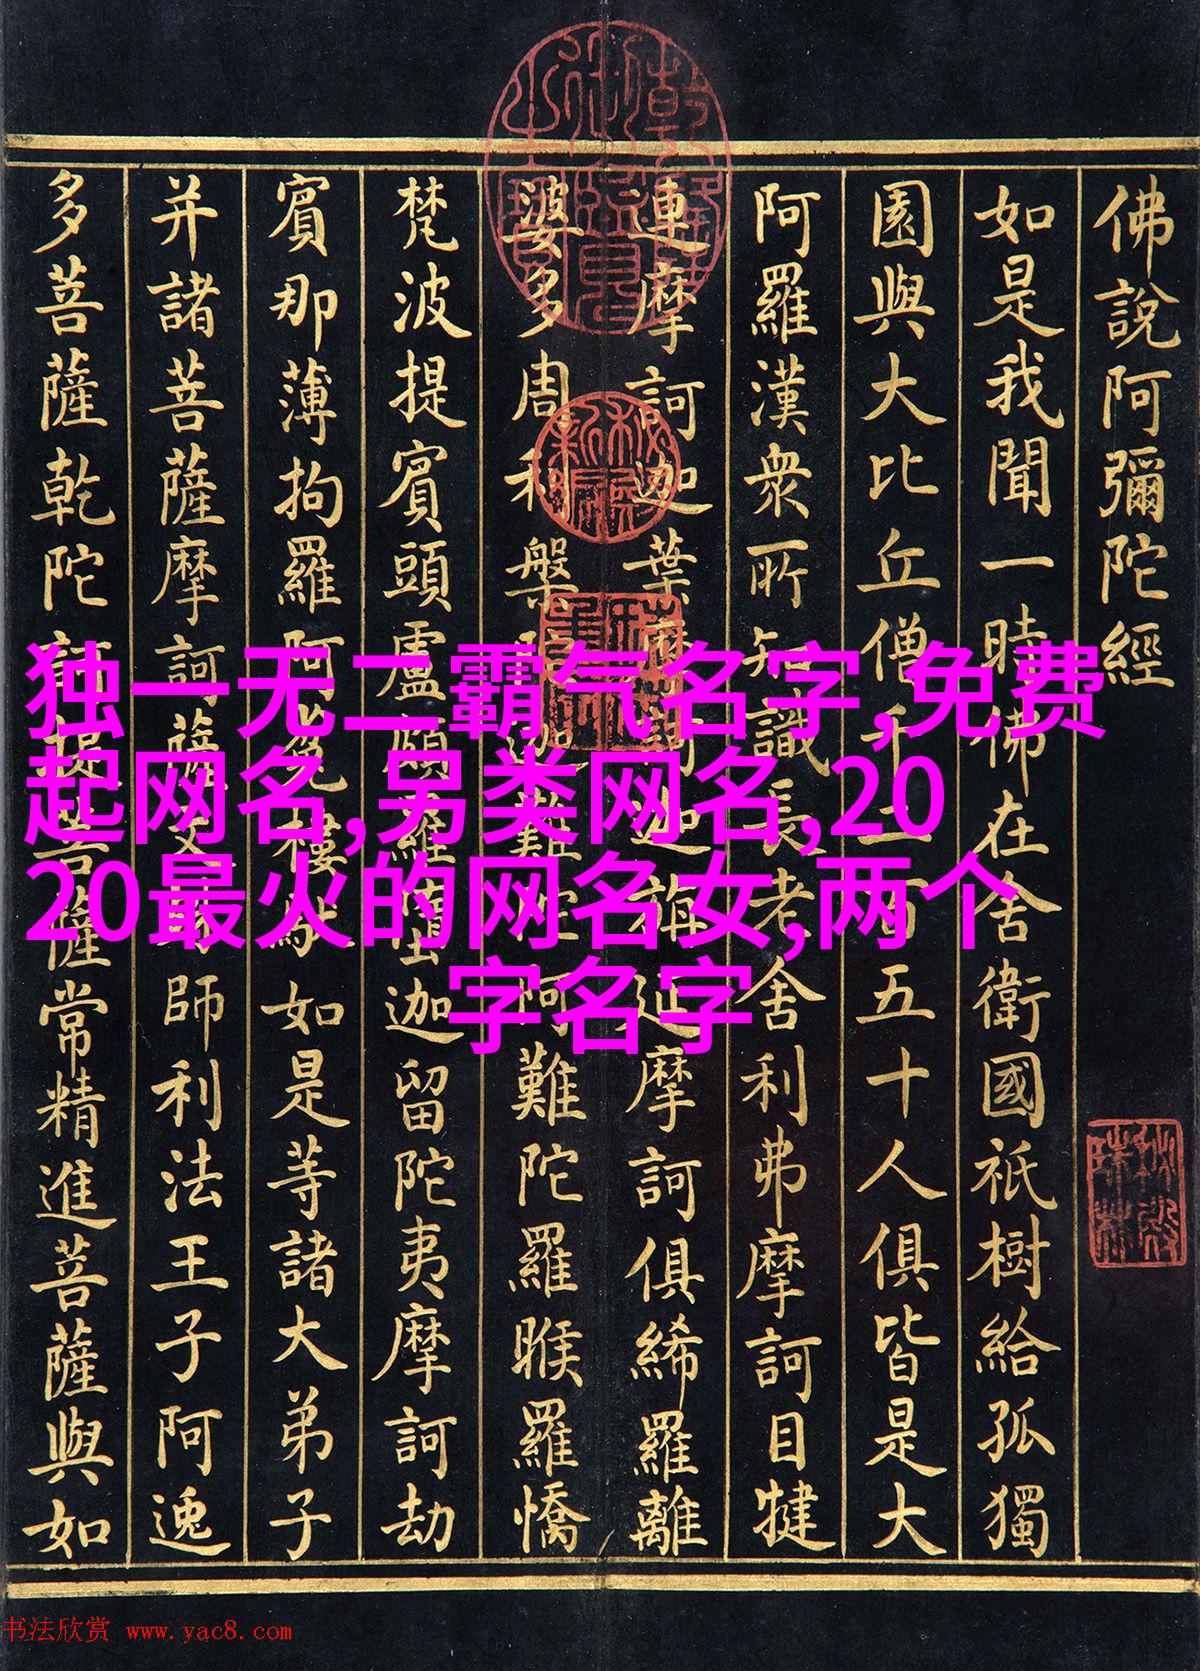 佛說阿彌陀經
如是我聞一時佛在舍衛國祇樹給孤獨
園與大比丘僧千二百五十人俱皆是大
阿羅漢衆所知識長老舍利弗摩訶目犍
連摩訶迦葉摩訶迦旃延摩訶俱絺羅離
婆多周利槃陀迦難陀阿難陀羅睺羅憍
梵波提賓頭盧頗羅墮迦留陀夷摩訶劫
賓那薄拘羅阿㝹樓馱如是等諸大弟子
并諸菩薩摩訶薩文殊師利法王子阿逸
多菩薩乾陀訶提菩薩常精進菩薩與如
独一无二霸气名字,免费
起网名,另类网名,20
20最火的网名女,两个
字名字
书法欣赏 www.yac8.com